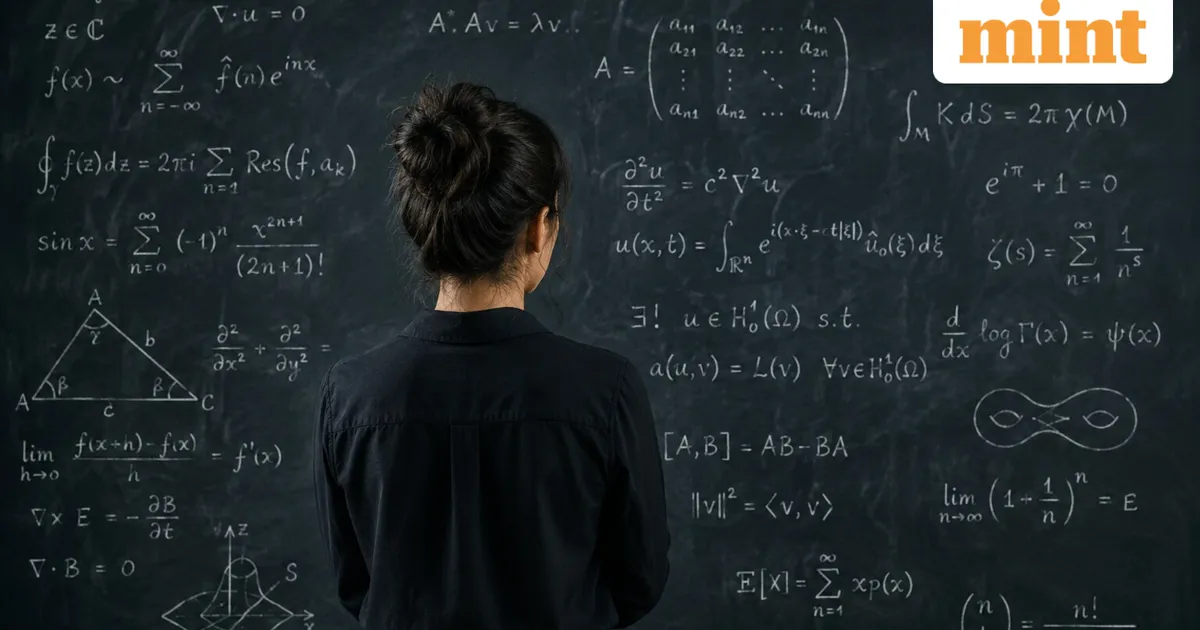 mint
z ∈ ℂ
∇·u = 0
A*. Av = λv..
f(x) ~ ∑_{n=-∞}^{∞} f̂(n) e^{inx}
A = (a₁₁ a₁₂ ... a₁ₙ
a₂₁ a₂₂ ... a₂ₙ
⋮ ⋮ ⋱ ⋮
aₙ₁ aₙ₂ ... aₙₙ)
∫_M K dS = 2π χ(M)
∮_γ f(z) dz = 2πi ∑_{n=1} Res(f, a_k)
∂²u/∂t² = c²∇²u
e^{iπ} + 1 = 0
sin x = ∑_{n=0}^{∞} (-1)ⁿ x^{2n+1}/(2n+1)!
u(x,t) = ∫_{ℝⁿ} e^{i(x·ξ-ct|ξ|)} û₀(ξ) dξ
ζ(s) = ∑_{n=1}^{∞} 1/n^s
A
γ
b
β
β
A
c
C
∂²/∂x² + ∂²/∂y² =
∃! u ∈ H₀¹(Ω) s.t.
a(u,v) = L(v) ∀v∈H₀¹(Ω)
d/dx log Γ(x) = ψ(x)
lim_{h→0} f(x+h)-f(x)/h = f'(x)
[A,B] = AB-BA
∇x E = -∂B/∂t
||v||² = ⟨v, v⟩
lim_{n→∞} (1+1/n)ⁿ = E
∇·B = 0
z
S
x
𝔼[X] = ∑_{n=1}^{∞} xp(x)
(n = n!